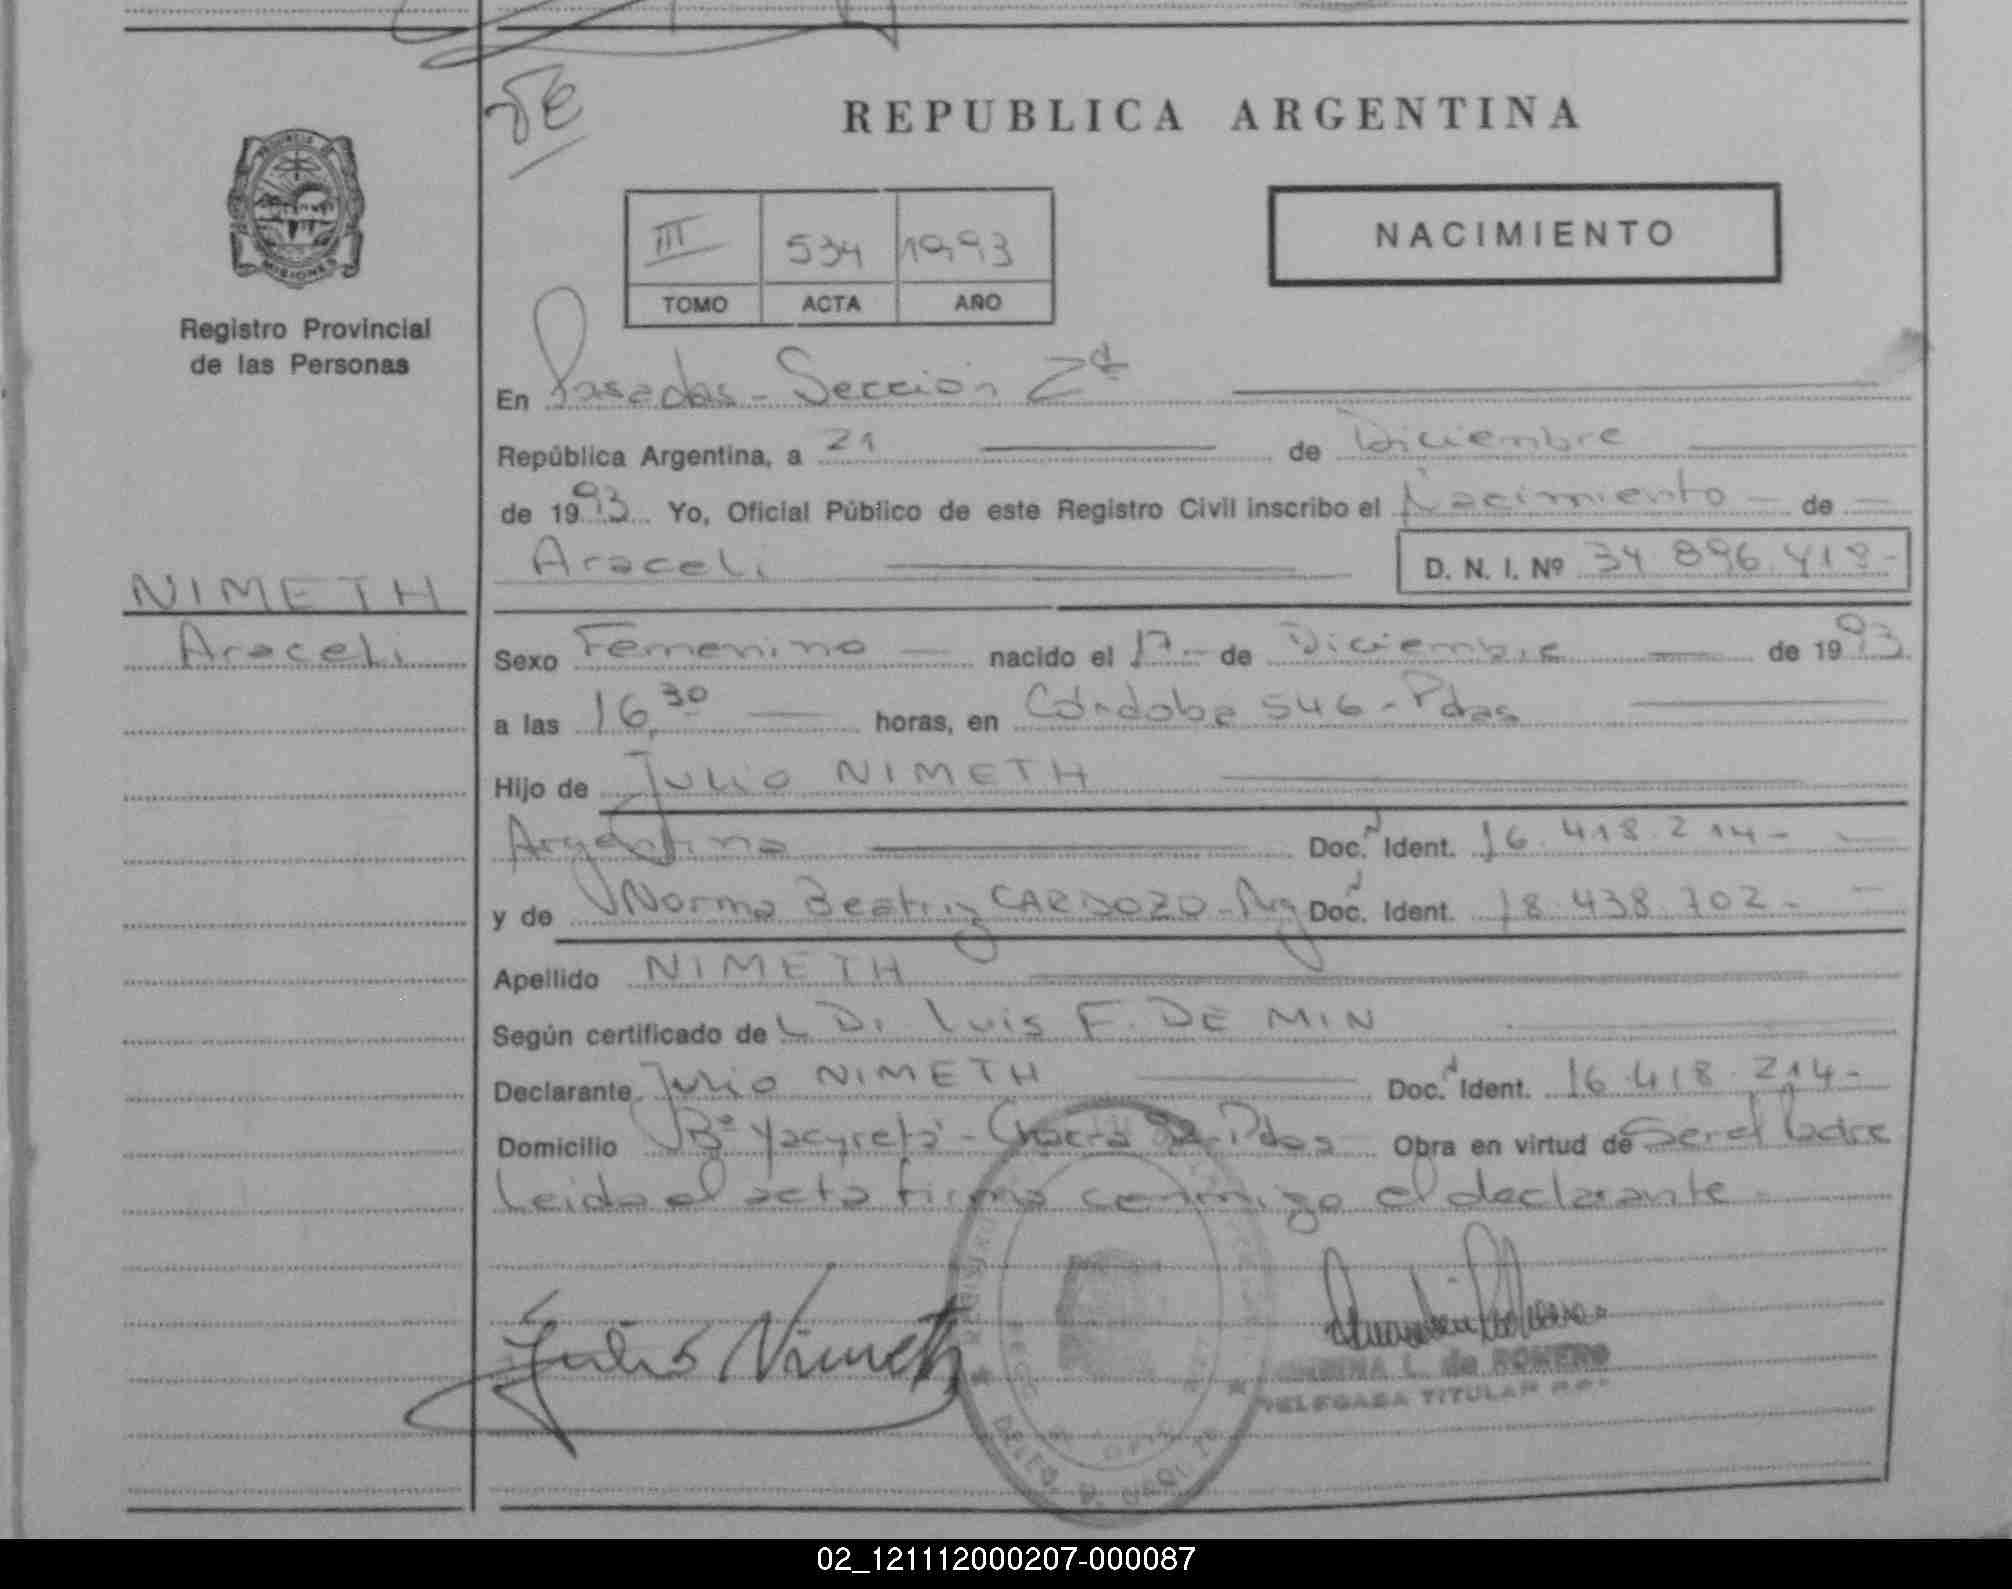 REPUBLICA ARGENTINA
III 534 1993
TOMO ACTA AÑO
NACIMIENTO
MISIONES
Registro Provincial
de las Personas
En Posadas - Sección 2ª
República Argentina, a 21 de Diciembre
de 1993 Yo, Oficial Público de este Registro Civil inscribo el Nacimiento - de -
Araceli D. N. I. Nº 34 896.418-
NIMETH
Araceli
Sexo Femenino nacido el 17 - de Diciembre de 1993
a las 16,30 horas, en Córdoba 546 - Pdas
Hijo de Julio NIMETH
Argentina Doc. Ident. 16.418.214-
y de Norma Beatriz CARDOZO - Arg Doc. Ident. 18.438.702-
Apellido NIMETH
Según certificado de L Dr Luis F. DE MIN
Declarante Julio NIMETH Doc. Ident. 16.418.214-
Domicilio Bº Yacyretá - Chacra Pdas Obra en virtud de Ser el Padre
Leida el acta firma conmigo el declarante.
Julio Nimeth
L. de ROMERO
DELEGADA TITULAR
02_121112000207-000087